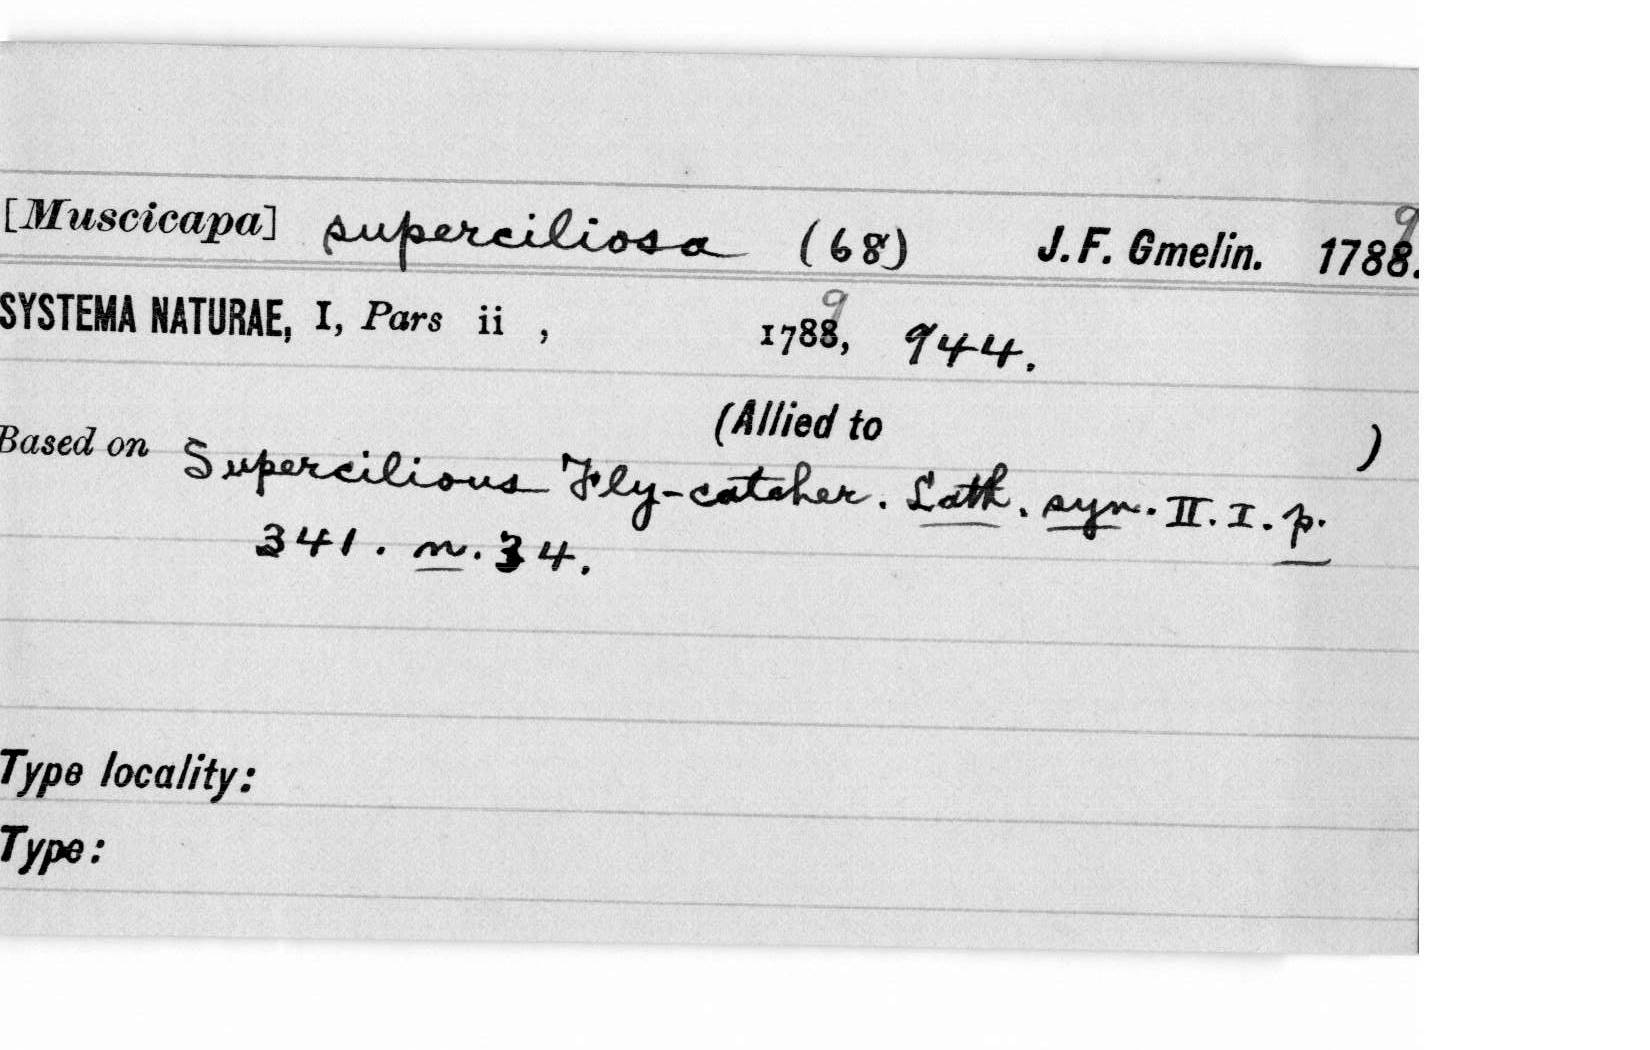 [Muscicapa] superciliosa (68) J. F. Gmelin. 1788. 9
SYSTEMA NATURAE, I, Pars ii , 1788, 9 944.
(Allied to )
Based on Supercilious Fly-catcher. Lath. syn. II. I. p.
341. n. 34.
Type locality:
Type: